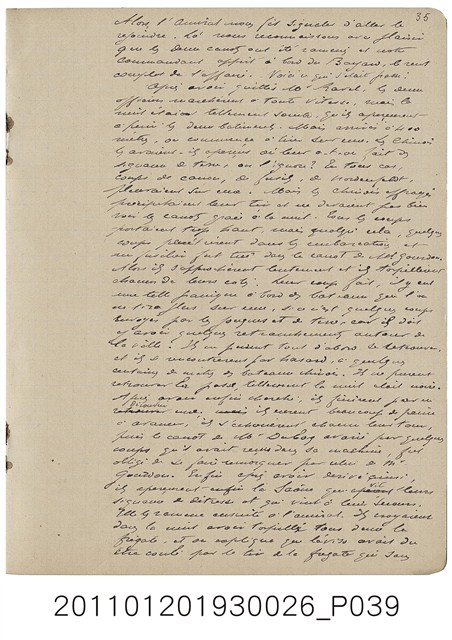 35
Alors l'amiral nous fit signaler d'aller le
rejoindre. Là nous reconnaissons avec plaisir
que les deux canots ont été ramenés et notre
commandant apprit à bord du Bayard, le rend
comptes de l'affaire. Voici ce qui s'était passé:
Après avoir quittés Mr Ravel, les deux
officiers marchèrent à toute vitesse, mais la
nuit était tellement sombre, qu'ils aperçurent
à peine les deux batiments. Mais arrivés à 400
mètres, on commença à tirer sur eux, les Chinois
les avaient-ils aperçus ou leur a-t-on fait des
signaux de terre, on l'ignore? En tous cas,
coups de canon, de fusil, de hotchkiss,
pleuvaient sur eux. Mais les chinois effrayés
précipitaient leur tir et ne devaient pas bien
voir les canots grâce à la nuit. Tous les coups
portaient trop haut, mais malgré cela, quelques
coups pénétrèrent dans les embarcations et
un fusilier fut tué dans le canot de Mr Gourdon.
Alors ils s'approchèrent lentement et ils torpillèrent
chacun de leurs cotés. Leur coup fait, il y eut
une telle panique à bord des bateaux que l'on
ne tira plus sur eux, si ce n'est quelques coups
envoyés par les jonques et de terre, car il doit
y avoir quelques retranchements autour de
la ville. Ils ne purent tout d'abord se retrouver
et ils se rencontrèrent par hasard, à quelques
centaines de mètres des bateaux chinois. Ils ne purent
retrouver la passe, tellement la nuit était noire.
Après avoir enfin cherché, ils finirent par en
découvrir
une, mais ils eurent beaucoup de peine
à avancer, ils s'échouèrent chacun leur tour,
puis le canot de Mr Duboc avarié par quelques
coups qu'il avait reçus dans sa machine, fut
obligé de se faire remorquer par celui de Mr
Gourdon. Enfin après avoir dérivé ainsi
ils aperçurent enfin la Saône qui vit leurs
signaux de détresse et qui vint à leur secours.
Elle les ramena ensuite à l'amiral. Ils croyaient
dans la nuit avoir torpillé tous deux la
frégate, et on explique que l'aviso aurait du
être coulé par le tir de la frégate qui sans
201101201930026_P039